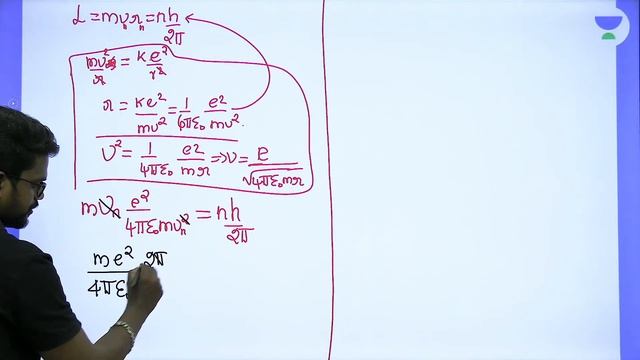 L = mvₙrₙ = nh/2π
mv²/r = ke²/r²
r = ke²/mv² = 1/4πε₀ e²/mv²
v² = 1/4πε₀ e²/mr ⇒ v = e/√4πε₀mr
mvₙ e²/4πε₀mvₙ² = nh/2π
me² 2π/4πε